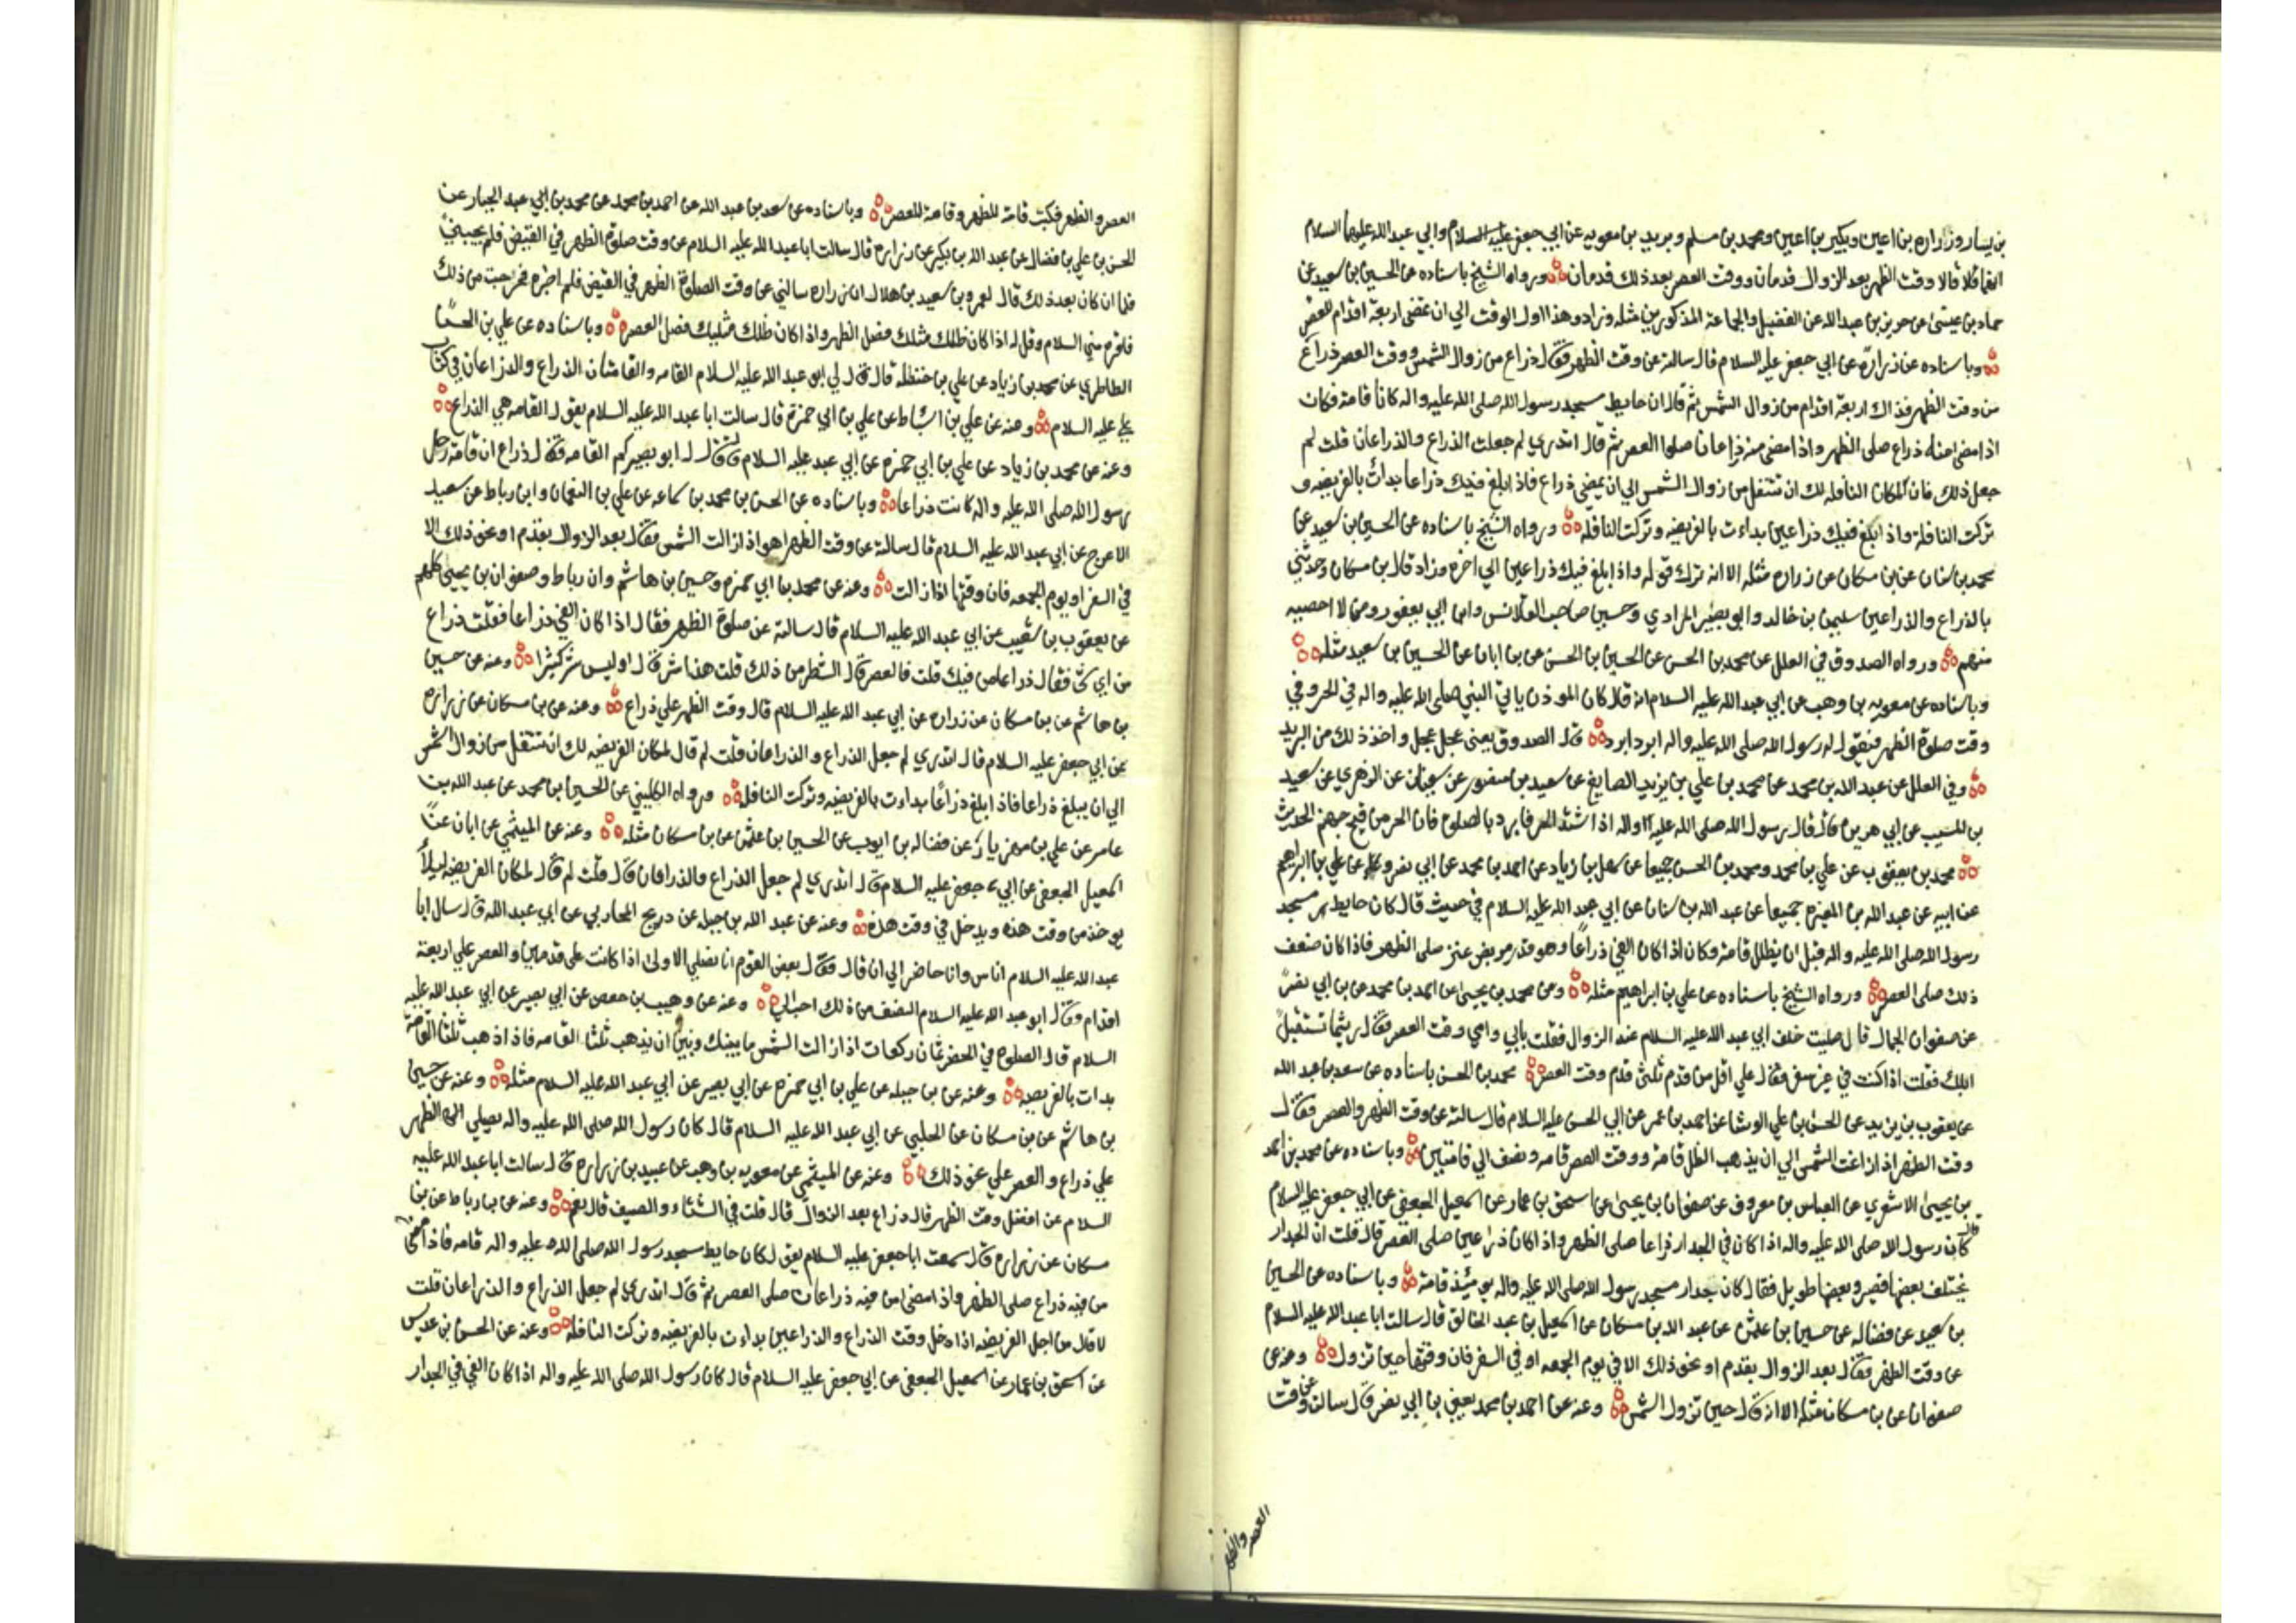 بن يسار وزرارة بن اعين وبكير بن اعين ومحمد بن مسلم وبريد بن معويه عن ابي جعفر عليه السلام وابي عبد الله عليهما السلام
انهما قالا وقت الظهر بعد الزوال قدمان ووقت العصر بعد ذلك قدمان ورواه الشيخ باسناده عن الحسين بن سعيد عن
حماد بن عيسى عن حريز بن عبد الله عن الفضيل والجماعة المذكورين مثله وزاد وهذا اول الوقت الي ان تمضى اربعة اقدام للعصر
وباسناده عن زرارة عن ابي جعفر عليه السلام قال سالته عن وقت الظهر فقال ذراع من زوال الشمس ووقت العصر ذراع
من وقت الظهر فذاك اربعة اقدام من زوال الشمس ثم قال ان حايط مسجد رسول الله صلى الله عليه واله كان قامة فكان
اذا مضى منه ذراع صلى الظهر واذا مضى منه ذراعان صلوا العصر ثم قال اتدري لم جعلت الذراع والذراعان قلت لم
جعل ذلك قال لمكان النافلة لك ان تتنفل من زوال الشمس الي ان يمضي ذراع فاذا بلغ فيئك ذراعا بدات بالفريضه و
تركت النافلة واذا بلغ فيئك ذراعين بداءت بالفريضه وتركت النافلة ورواه الشيخ باسناده عن الحسين بن سعيد عن
محمد بن سنان عن بن مسكان عن زراره مثله الا انه ترك قوله واذا بلغ فيئك ذراعين الي اخره وزاد قال بن مسكان وحدثني
بالذراع والذراعين سليمن بن خالد وابو بصير المرادي وحسين صاحب القلانس وابن ابي يعفور ومن لا احصيه
منهم ورواه الصدوق في العلل عن محمد بن الحسن عن الحسين بن الحسن عن بن ابان عن الحسين بن سعيد مثله
وباسناده عن معويه بن وهب عن ابي عبد الله عليه السلام انه قال كان الموذن ياتي النبي صلى الله عليه واله في الحر وفي
وقت صلوة الظهر فيقول له رسول الله صلى الله عليه واله ابرد ابرد قال الصدوق يعني عجل عجل واخذ ذلك من البريد
وفي العلل عن عبد الله بن محمد عن محمد بن علي بن يزيد الصايغ عن سعيد بن منصور عن سفيان عن الزهري عن سعيد
بن المسيب عن ابي هريرة قال قال رسول الله صلى الله عليه واله اذا اشتد الحر فابرد بالصلوة فان الحر من فيح جهنم الحديث
محمد بن يعقوب عن علي بن محمد ومحمد بن الحسن جميعا عن سهل بن زياد عن احمد بن محمد عن ابي نصر وعن علي بن ابراهيم
عن ابيه عن عبد الله بن المغيرة جميعا عن عبد الله بن سنان عن ابي عبد الله عليه السلام في حديث قال كان حايط مسجد
رسول الله صلى الله عليه واله قبل ان يظلل قامة وكان اذا كان الفئ ذراعا وهو قدر مربض عنز صلى الظهر فاذا كان ضعف
ذلك صلى العصر ورواه الشيخ باسناده عن علي بن ابراهيم مثله وعن محمد بن يحيى عن احمد بن محمد عن بن ابي نصر
عن صفوان الجمال قال صليت خلف ابي عبد الله عليه السلام عند الزوال فقلت بابي وامي وقت العصر فقال ريثما تستقبل
ابلك فقلت اذا كنت في غير سفر فقال علي اقل من قدم ثلثي قدم وقت العصر محمد بن الحسن باسناده عن سعد بن عبد الله
عن يعقوب بن يزيد عن الحسن بن علي الوشا عن احمد بن عمر عن ابي الحسن عليه السلام قال سالته عن وقت الظهر والعصر فقال
وقت الظهر اذا زاغت الشمس الي ان يذهب الظل قامة ووقت العصر قامه ونصف الي قامتين وباسناده عن محمد بن احمد
بن يحيى الاشعري عن العباس بن معروف عن صفوان بن يحيى عن اسحق بن عمار عن اسمعيل الجعفي عن ابي جعفر عليه السلام
قال كان رسول الله صلى الله عليه واله اذا كان في الجدار ذراعا صلى الظهر واذا كان ذراعين صلى العصر قال قلت ان الجدار
يختلف بعضها قصير وبعضها طويل فقال كان جدار مسجد رسول الله صلى الله عليه واله يومئذ قامة وباسناده عن الحسين
بن سعيد عن فضاله عن حسين بن عثمن عن عبد الله بن مسكان عن اسمعيل بن عبد الخالق قال سالت ابا عبد الله عليه السلام
عن وقت الظهر فقال بعد الزوال بقدم او نحو ذلك الا في يوم الجمعه او في السفر فان وقتها حين تزول وعنه عن
صفوان عن بن مسكان مثله الا انه قال حين تزول الشمس وعنه عن احمد بن محمد يعني بن ابي نصر قال سالته عن وقت
العصر والظهر
العصر والظهر فكتب قامة للظهر وقامة للعصر وباسناده عن سعد بن عبد الله عن احمد بن محمد عن محمد بن ابي عبد الجبار عن
الحسن بن علي بن فضال عن عبد الله بن بكير عن زراره قال سالت ابا عبد الله عليه السلام عن وقت صلوة الظهر في القيض فلم يجبني
فلما ان كان بعد ذلك قال لعمرو بن سعيد بن هلال ان زراره سالني عن وقت الصلوة الظهر في القيض فلم اخبره فحرجت من ذلك
فاقره مني السلام وقل له اذا كان ظلك مثلك فصل الظهر واذا كان ظلك مثليك فصل العصر وباسناده عن علي بن الحسن
الطاطري عن محمد بن زياد عن علي بن حنظله قال قال لي ابو عبد الله عليه السلام القامه والقامتان الذراع والذراعان في كتاب
علي عليه السلام وعنه عن علي بن اسباط عن علي بن ابي حمزة قال سالت ابا عبد الله عليه السلام يقول القامه هي الذراع
وعنه عن محمد بن زياد عن علي بن ابي حمزه عن ابي عبد عليه السلام قال له ابو بصير كم القامه فقال ذراع ان قامة رحل
رسول الله صلى الله عليه واله كانت ذراعا وباسناده عن الحسن بن محمد بن سماعه عن علي بن النعمان وابن رباط عن سعيد
الاعرج عن ابي عبد الله عليه السلام قال سالته عن وقت الظهر اهو اذا زالت الشمس فقال بعد الزوال بقدم او نحو ذلك الا
في السفر او يوم الجمعه فان وقتها اذا زالت وعنه عن محمد بن ابي حمزه وحسين بن هاشم وان رباط وصفوان بن يحيى كلهم
عن يعقوب بن شعيب عن ابي عبد الله عليه السلام قال سالته عن صلوة الظهر فقال اذا كان الفئ ذراعا فقلت ذراع
من اي شئ فقال ذراعا من فيئك قلت فالعصر قال الشطر من ذلك قلت هذا شبر قال اوليس شبر كثيرا وعنه عن حسين
بن هاشم عن بن مسكان عن زراره عن ابي عبد الله عليه السلام قال وقت الظهر علي ذراع وعنه عن بن مسكان عن زراره
عن ابي جعفر عليه السلام قال اتدري لم جعل الذراع والذراعان قلت لم قال لمكان الفريضه لك ان تتنفل من زوال الشمس
الي ان يبلغ ذراعا فاذا بلغ ذراعا بداءت بالفريضه وتركت النافلة ورواه الكليني عن الحسين بن محمد عن عبد الله بن
عامر عن علي بن مهزيار عن فضاله بن ايوب عن الحسين بن عثمن عن بن مسكان مثله وعنه عن الميثمي عن ابان عن
اسمعيل الجعفي عن ابي جعفر عليه السلام قال اتدري لم جعل الذراع والذراعان قال قلت لم قال لمكان الفريضه ليلا
يوخذ من وقت هذه ويدخل في وقت هذه وعنه عن عبد الله بن جبله عن ذريح المحاربي عن ابي عبد الله قال سال ابا
عبد الله عليه السلام اناس وانا حاضر الي ان قال فقال بعض القوم انا نصلي الاولى اذا كانت على قدمين والعصر علي اربعة
اقدام وقال ابو عبد الله عليه السلام النصف من ذلك احب الي وعنه عن وهيب بن حفص عن ابي بصير عن ابي عبد الله عليه
السلام قال الصلوة في الحضر ثمان ركعات اذا زالت الشمس ما بينك وبين ان يذهب ثلثا القامه فاذا ذهب ثلثا القامة
بدات بالفريضه وعنه عن بن جبله عن علي بن ابي حمزه عن ابي بصير عن ابي عبد الله عليه السلام مثله وعنه عن حسين
بن هاشم عن بن مسكان عن الحلبي عن ابي عبد الله عليه السلام قال كان رسول الله صلى الله عليه واله يصلي الظهر
علي ذراع والعصر علي نحو ذلك وعنه عن الميثمي عن معويه بن وهب عن عبيد بن زراره قال سالت ابا عبد الله عليه
السلام عن افضل وقت الظهر قال ذراع بعد الزوال قال قلت في الشتاء والصيف قال نعم وعنه عن بن رباط عن بن
مسكان عن زراره قال سمعت ابا جعفر عليه السلام يقول كان حايط مسجد رسول الله صلى الله عليه واله قامه فاذا مضى
من فيئه ذراع صلى الظهر واذا مضى من فيئه ذراعان صلى العصر ثم قال اتدري لم جعل الذراع والذراعان قلت
لا قال من اجل الفريضه اذا دخل وقت الذراع والذراعين بداءت بالفريضه وتركت النافلة وعنه عن الحسن بن عديس
عن اسحق بن عمار عن اسمعيل الجعفي عن ابي جعفر عليه السلام قال كان رسول الله صلى الله عليه واله اذا كان الفئ في الجدار